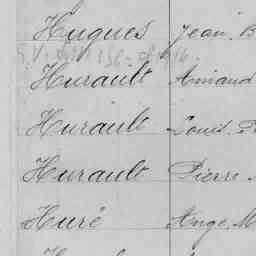 Hugues Jean B
Hurault Amand
Hurault Louis
Hurault Pierre
Huré Ange M